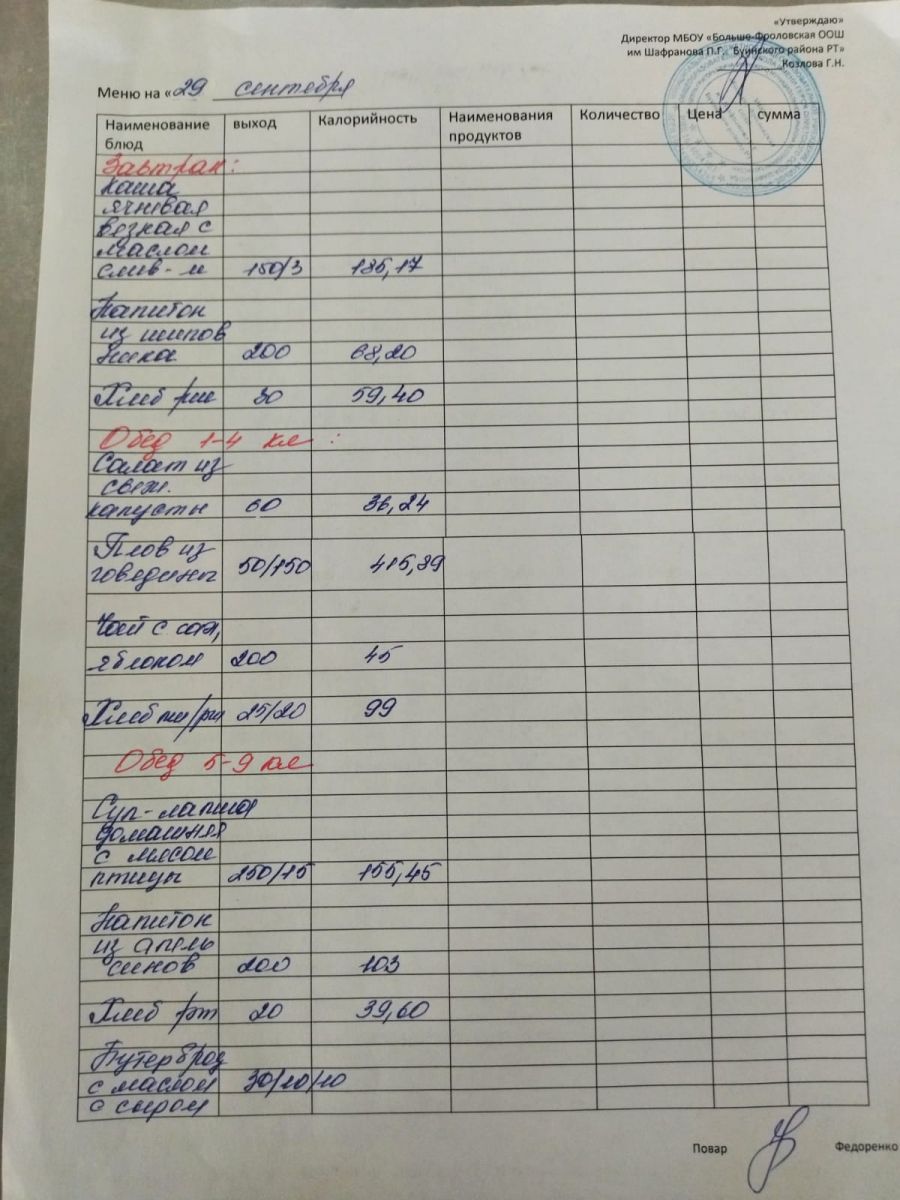 «Утверждаю»
Директор МБОУ «Больше-Фроловская ООШ
им Шафранова П.Г., Буинского района РТ»
Козлова Г.Н.
Меню на «29 сентября
Наименование блюд выход Калорийность Наименования продуктов Количество Цена сумма
Завтрак:
Каша
ячневая
вязкая с
маслом
слив-м 150/3 185,17
Напиток
из шипов
ника 200 68,20
Хлеб рж 30 59,40
Обед 1-4 кл :
Салат из
свеж.
капусты 60 36,24
Плов из
говедины 50/150 415,89
Чай с сах,
яблоком 200 45
Хлеб пш/рж 25/20 99
Обед 5-9 кл
Суп-лапша
домашняя
с мясом
птицы 250/15 155,45
Напиток
из апель
синов 200 103
Хлеб рж 20 39,60
Бутерброд
с маслом 30/10/10
с сыром
Повар Федоренко